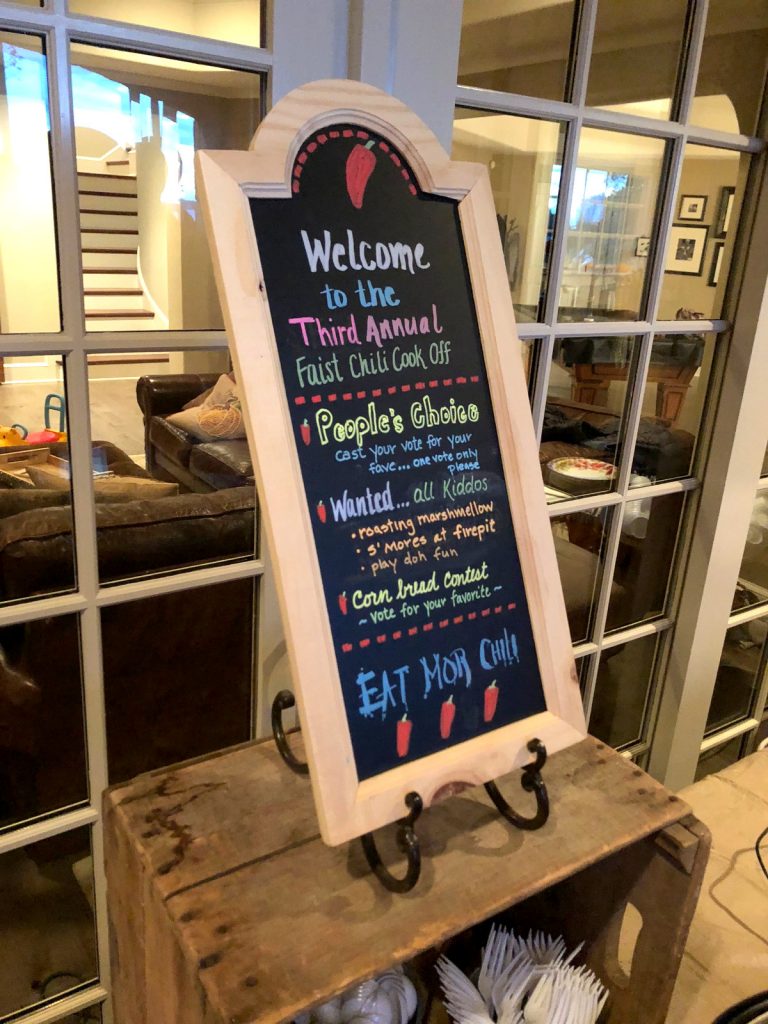 Welcome
to the
Third Annual
Faist Chili Cook Off
People's Choice
cast your vote for your
fave... one vote only
please
Wanted... all Kiddos
• roasting marshmellow
• s'mores at firepit
• play doh fun
Corn bread contest
~ vote for your favorite ~
EAT MOR CHILI